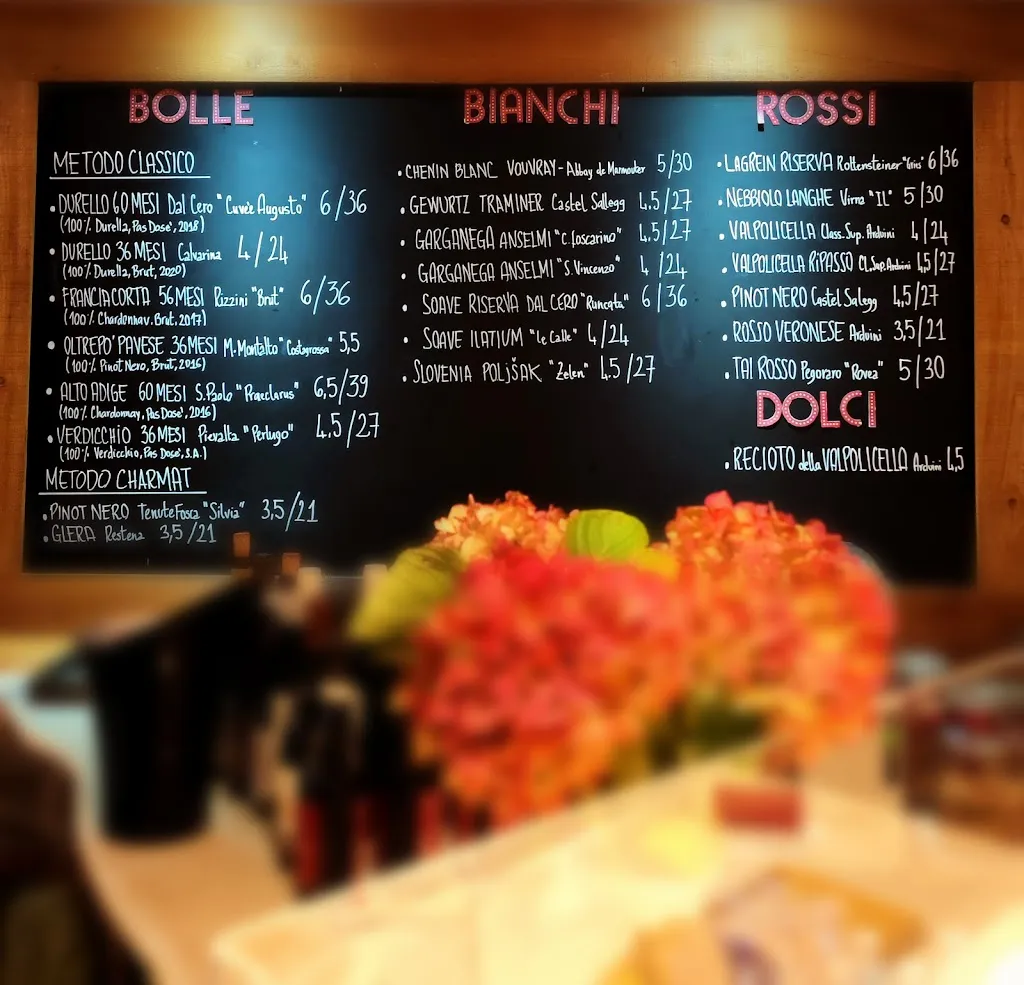 BOLLE
METODO CLASSICO
• DURELLO 60 MESI Dal Cero "Cuvèe Augusto" 6/36
(100% Durella, Pas Dosè, 2018)
• DURELLO 36 MESI Calvarina 4/24
(100% Durella, Brut, 2020)
• FRANCIACORTA 56 MESI Rizzini "Brut" 6/36
(100% Chardonnay, Brut, 2017)
• OLTREPO' PAVESE 36 MESI M. Montalto "Costagrossa" 5,5
(100% Pinot Nero, Brut, 2016)
• ALTO ADIGE 60 MESI S. Paolo "Praeclarus" 6,5/39
(100% Chardonnay, Pas Dosè, 2016)
• VERDICCHIO 36 MESI Pievalta "Perlugo" 4.5/27
(100% Verdicchio, Pas Dosè, S.A.)
METODO CHARMAT
• PINOT NERO Tenute Fosca "Silvia" 3,5/21
• GLERA Restena 3,5/21
BIANCHI
• CHENIN BLANC VOUVRAY - Abbay de Marmoutier 5/30
• GEWURTZ TRAMINER Castel Sallegg 4.5/27
• GARGANEGA ANSELMI "C. Foscarino" 4,5/27
• GARGANEGA ANSELMI "S. Vincenzo" 4/24
• SOAVE RISERVA DAL CERO "Runcata" 6/36
• SOAVE ILATIUM "Le Calle" 4/24
• SLOVENIA POLJŠAK "Zelen" 4.5/27
ROSSI
• LAGREIN RISERVA Rottensteiner "Gries" 6/36
• NEBBIOLO LANGHE Virna "IL" 5/30
• VALPOLICELLA Class. Sup. Arduini 4/24
• VALPOLICELLA RIPASSO Cl. Sup. Arduini 4,5/27
• PINOT NERO Castel Salegg 4,5/27
• ROSSO VERONESE Arduini 3,5/21
• TAI ROSSO Pegoraro "Rovea" 5/30
DOLCI
• RECIOTO della VALPOLICELLA Arduini 4,5